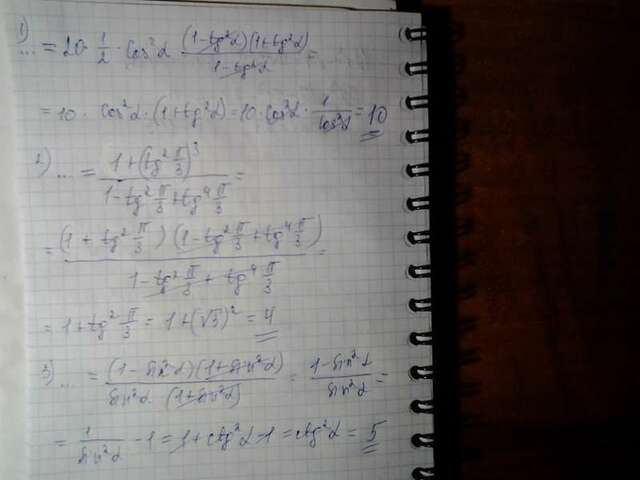 1) ... = 20 · 1/2 · cos²α · (1-tg²α)(1+tg²α)/(1-tg²α) =
= 10 · cos²α · (1+tg²α) = 10 · cos²α · 1/cos²α = 10
2) ... = (1+(tg² π/3)³)/(1-tg² π/3 + tg⁴ π/3) =
= (1+tg² π/3)(1-tg² π/3 + tg⁴ π/3)/(1-tg² π/3 + tg⁴ π/3) =
= 1+tg² π/3 = 1+(√3)² = 4
3) ... = (1-sin²α)(1+sin²α)/(sin²α (1+sin²α)) = (1-sin²α)/sin²α =
= 1/sin²α - 1 = 1+ctg²α-1 = ctg²α = 5